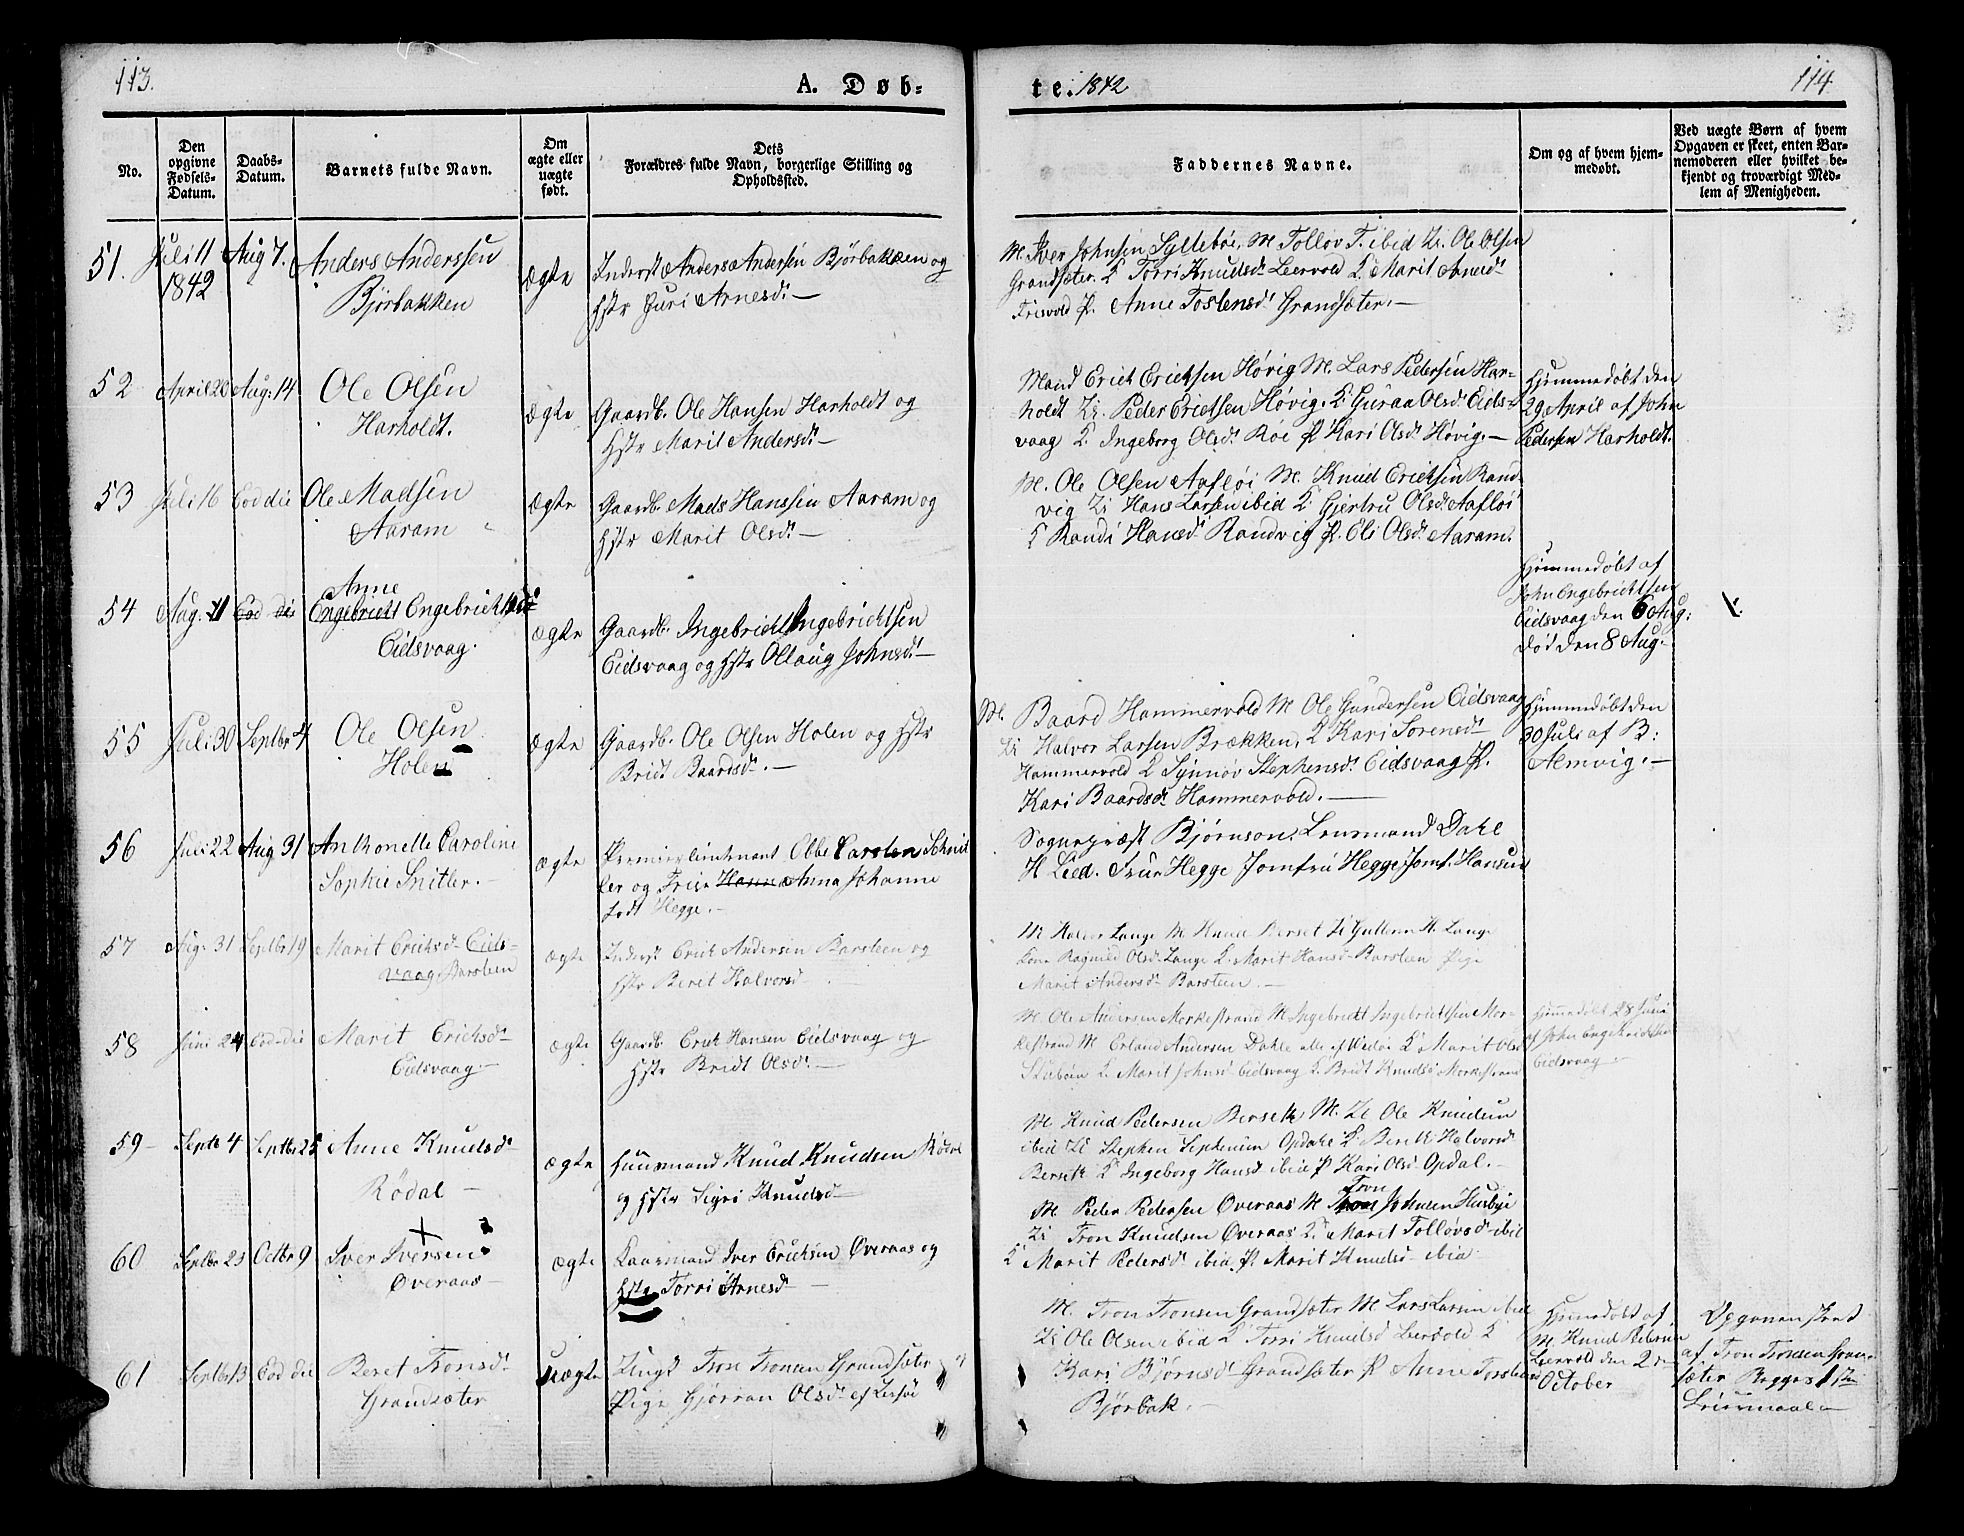 113.
A. Døb-
te. 1842
114
No.
Den opgivne Fødsels-Datum.
Daabs-Datum.
Barnets fulde Navn.
Om ægte eller uægte født.
Dets Forældres fulde Navn, borgerlige Stilling og Opholdssted.
Faddernes Navne.
Om og af hvem hjem-medøbt.
Ved uægte Børn af hvem Opgaven er skeet, enten Bar-nemoderen eller hvilket be-kjendt og troværdigt Med-lem af Menigheden.
51. Juli 11 1842 Aug 7. Anders Anderssen
Bjørbakken
ægte
Inderst Anders Andersen Bjørbakken og
Hstr Guri Arnesd.
M. Iver Johnsen Syltebøe, M. Tollov T. ibid Ti. Ole Olsen
Grandsæter. K. Torri Knudsd. Leervold K. Marit Arnesd.
Trisvold P. Anne Tostensd. Grandsæter.
52 April 20 Aug: 14 Ole Olsen
Harholdt.
ægte
Gaardb. Ole Hansen Harholdt og
Hstr Marit Andersd.
Mand Erich Erichsen Høvig M. Lars Pedersen Har-
holdt Ti. Peder Erichsen Høvig. K. Guraa Olsd. Eids-
vaag K. Ingeborg Olsd. Røe P. Kari Olsd. Høvig.
Hjemmedøbt den
29 April af John
Pedersen Harholdt.
53 Juli 16 Eod die Ole Madsen
Aaram
ægte
Gaardb. Mads Hanssen Aaram og
Hstr Marit Olsd.
M. Ole Olsen Aafløi M. Knud Erichsen Rand-
vig Ti Hans Larsen ibid K. Gjertru Olsd. Aafløi
K Randi Hansd. Randvig P. Eli Olsd. Aaram.
54 Aug. Eod die Anne
Engebricht Engebrichtsd.
Eidsvaag.
ægte
Gaardb. Ingebricht Ingebrichtsen
Eidsvaag og Hstr Ollaug Johnsd.
Hjemmedøbt af
John Engebrichtsen
Eidsvaag den 6 Aug:
død den 8 Aug.
55 Juli 30 Septbr 4 Ole Olsen
Holen
ægte
Gaardb. Ole Olsen Holen og Hstr
Bridt Baardsd.
M. Baard Hammervold M Ole Gundersen Eidsvaag
Ti Halvor Larsen Brækken, K Kari Sørensd.
Hammervold K Synnøv Stephensd. Eidsvaag P.
Kari Baardsd. Hammervold.
Hjemmedøbt den
30 Juli af B:
Almvig.
56 Juli 22 Aug 31 Anthonette Caroline
Sophie Snitler.
ægte
Premierlieutnant Obbe Carsten Schnit
ler og Frue Hanna Anna Johanne
født Hegge.
Sognepræst Bjørnson, Lensmand Dahl
H Lied. Frue Hegge Jomfru Hegge Jomf. Hansen
57 Aug. 31 Septbr 19 Marit Erichsd. Eids-
vaag Barsteen
ægte
Inderst Erich Andersen Barsteen og
Hstr Beret Halvorsd.
M Halvor Lange M Knud Berset Ti Guttorm H. Lange
Kone Ragnild Olsd. Lange K. Marit Hansd. Barsteen Pige
Marit Andersd. Barsteen.
58 Juni 24 Eod die Marit Erichsd.
Eidsvaag
ægte
Gaardb Erich Hansen Eidsvaag og
Hstr Bridt Olsd.
M Ole Andersen Morkestrand M Ingebricht Ingebrichtsen Mor-
kestrand M Erland Andersen Dahle alle af Vedøe K Marit Olsd
K. Marit Johnsd Eidsvaag K. Bridt Knudsd Morkestrand
Hjemmedøbt 28 Juni
af John Engebrichtsen
Eidsvaag
59 Septb 4 Septbr 25 Anne Knudsd.
Rödal
ægte
Huusmand Knud Knudsen Rödal
og Hstr Sigri Knudsd
M Knud Pedersen Berseth M. Ti Ole Knudsen
ibid Ti Stephen Stephensen Opdahl K Bereth Halvorsd.
Berseth K Ingeborg Hansd ibid P Kari Olsd Opdal.
60 Septbr 23 Octbr 9 Iver Iversen
Overaas
ægte
Kaarmand Iver Erichsen Overaas og
Hstr Torri Arnesd
M. Peder Pedersen Overaas M Tron Johnsen Husbye
Ti Tron Knudsen Overaas K. Marit Tollovsd. ibid
K Marit Pedersd ibid P Marit Knudsd ibid
61 Septbr 13 Eod die Beret Tronsd.
Grandsæter
uægte
Ungk Tron Tronsen Grandsæter
Pige Gjørran Olsd. af Lesjø
M. Tron Tronsen Grandsæter M Lars Larsen ibid
Ti Ole Olsen ibid K Torri Knudsd Leervold K
Kari Bjørnsd. Grandsæter P Anne Torstens
Bjørbak.
Hjemmedøbt af
M. Knud Pedersen
Leervold den 2
October
Opgaven skeet
af Tron Tronsen Grand
sæter Begges 1ste
Leiermaal